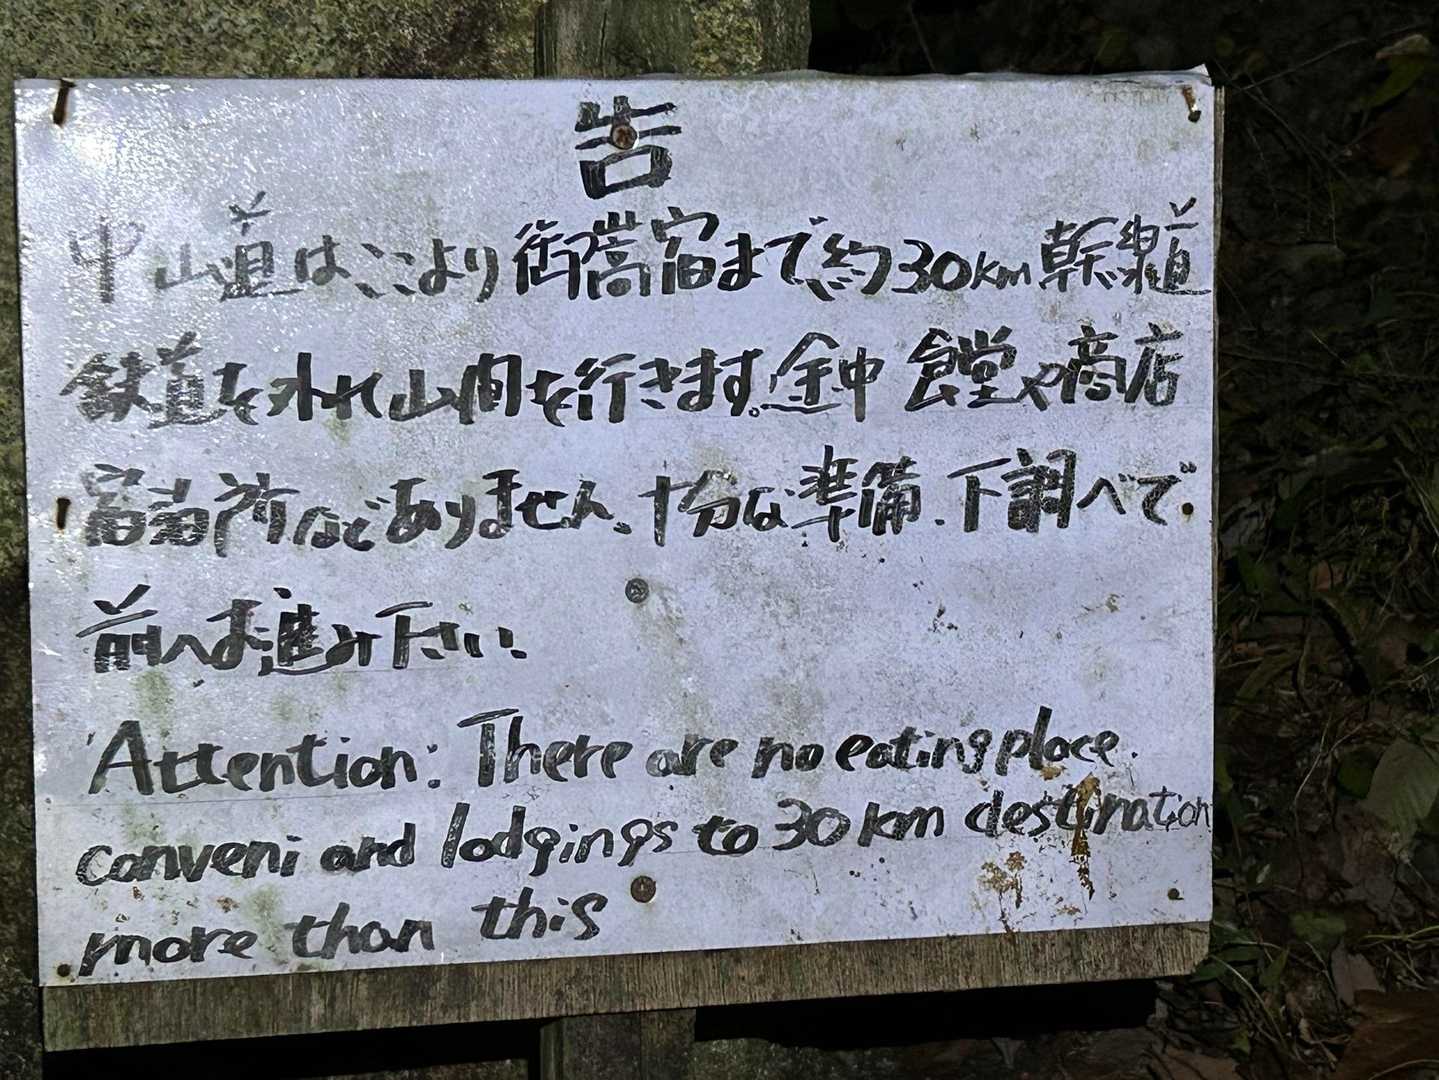 告
中山道はここより御嵩宿まで、約30km幹線道
鉄道を外れ山間を行きます。途中 食堂や商店
宿泊所などありません、十分な準備、下調べで
前へお進み下さい、
Attention: There are no eating place.
conveni and lodgings to 30 km destination
more than this